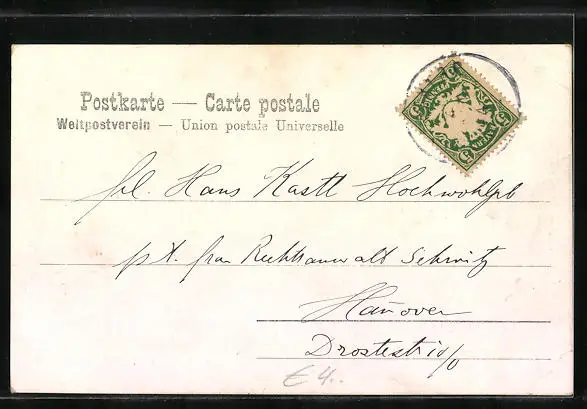 Postkarte — Carte postale
Weltpostverein — Union postale Universelle
Hans Kastl Hochwohlgb
p. A. Frau Rechtsanwalt Schmitz
Hanover
Drostestr 10/0
€ 4..